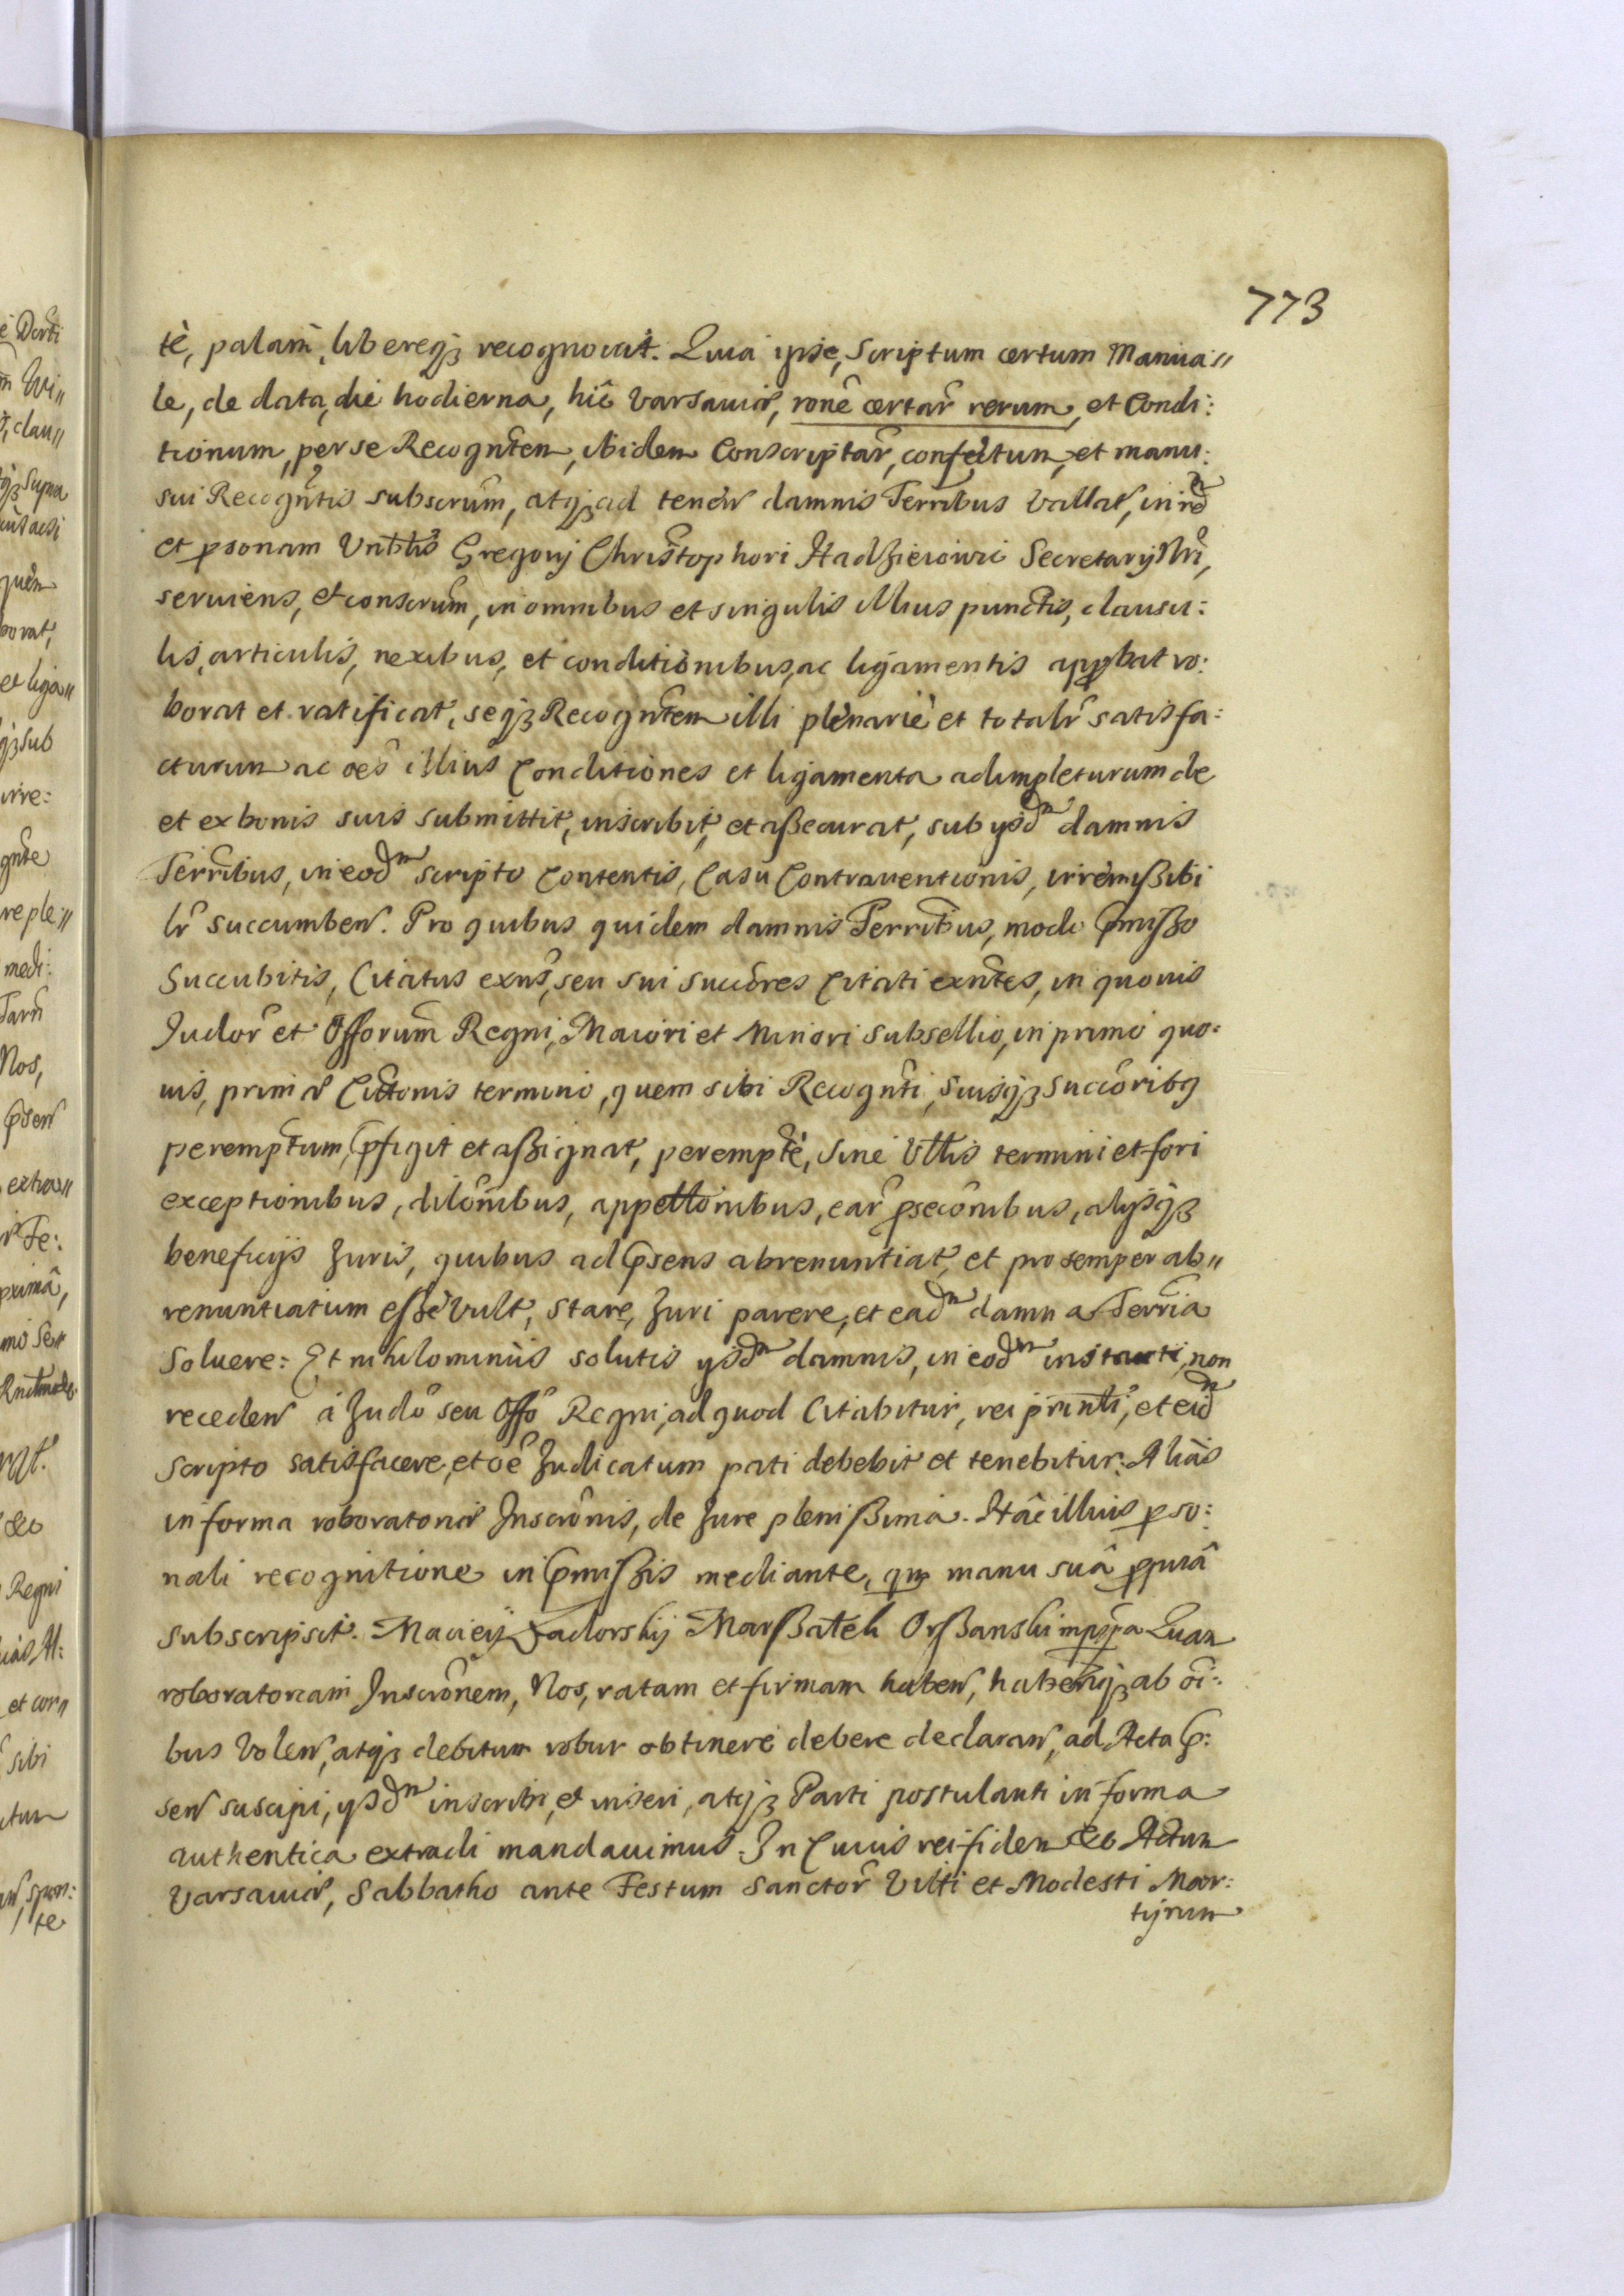 773
tè, palam̃, libereqꝫ recognouit. Quia ipse, Scriptum certum Manua〃
le, de data, die hodierna, hîc Varsauiæ, rone͂ certar͂ rerum, et Condi:
tionum, per se Recogñtem, ibidem Conscriptar͂, confectum, et manu:
sui Recogñtis subscrum͂, atqꝫ ad tenen̄ damnis Terrribus vallat̃, in rẽ
et ꝑsonam Vrbilis Gregorij Christophori Hadziewic Secretarij Nrĩ,
seruiens, et conscrum͂, in omnibus et singulis illius punctis, clausu:
lis, articulis, nexibus, et conditionibus, ac ligamentis approbat ro:
borat et ratificat, seqꝫ Recogñtem illi plenariè et totalr͂ satisfa:
cturum ac oẽs illius Conditiones et ligamenta adimpleturum de
et ex bonis suis submittit, inscribit, et aßecurat, sub ijsdm damnis
Terrribus, in eodm scripto Contentis, Casu Contrauentionis, irremißibi
lr͂ succumben̄. Pro quibus quidem damnis Terrribus, modo p̃mißo
Succubitis, Citatus exñs, seu sui succores͂ Citati exñtes, in quouis
Judor͂ et Offorum͂ Regni, Maiori et Minori subsellio, in primo quo:
uis, primæ Cittonis termino, quem sibi Recogñti, suisqꝫ succoribꝫ
peremptum͂, p̃figit et aßignat, perempte͂, sine Vllis termini et fori
exceptionibus, dilonibus͂, appellonibus, ear͂ ꝓseconibus͂, alijsqꝫ
beneficijs Juris, quibus ad p̃sens abrenuntiat, et pro semper ab〃
renuntiatum eße vult, stare, Juri parere, et eadm damna Terria͂
soluere: Et nihilominùs solutis ijsdm damnis, in eodm instanti, non
receden̄ à Judo͂ seu Offo͂ Regni, ad quod Citabitur, rei prinlĩ, et eidm
scripto satisfacere, et oẽ Judicatum pati debebit et tenebitur: Aliàs
in forma roboratoriæ Inscronis͂, de Jure plenißima. Hâc illius ꝑso:
nali recognitione in p̃mißis mediante, qm manu suâ ꝓpriâ
subscripsit. Maciey Jadorskij Marßałek Orßanski mppa Quam
roboratoriam Inscronem͂, Nos, ratam et firmam haben̄, haberiqꝫ ab oĩ:
bus Volen̄, atqꝫ debitum robur obtinere debere declaran̄, ad Acta p̃:
sen̄ suscipi, ijsdm inscribi, et inseri, atqꝫ Parti postulanti in forma
authentica extradi mandauimus. In Cuius rei fidem &c Actum
Varsauiæ, Sabbatho ante Festum Sanctor͂ Viti et Modesti Mar:
tyrum